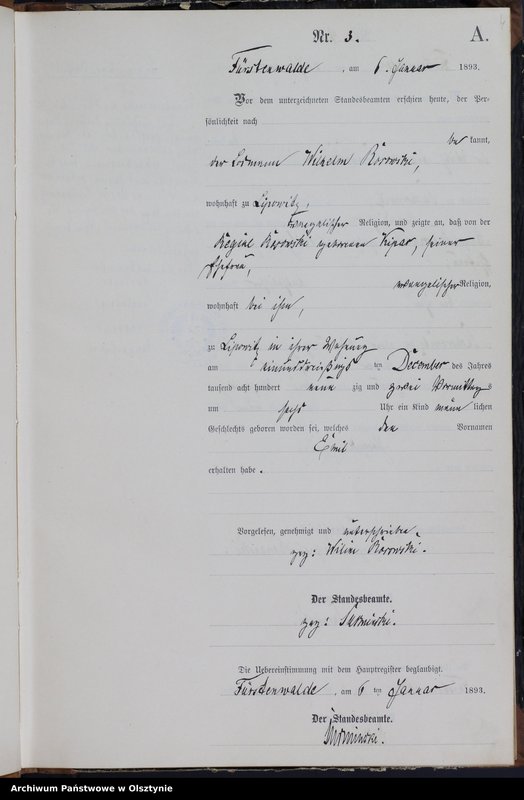 Nr. 3. A.
Fürstenwalde, am 6. Januar 1893.
Vor dem unterzeichneten Standesbeamten erschien heute, der Per-
sönlichkeit nach
be kannt,
der Losmann Wilhelm Borowski,
wohnhaft zu Lipowitz,
evangelischer Religion, und zeigte an, daß von der
Regine Borowski geborenen, seiner
Ehefrau,
evangelischer Religion,
wohnhaft bei ihm,
zu Lipowitz in ihrer Wohnung
am einunddreißigs ten December des Jahres
tausend acht hundert neun zig und zwei Vormittags
um sechs Uhr ein Kind männ lichen
Geschlechts geboren worden sei, welches den Vornamen
Emil
erhalten habe.
Vorgelesen, genehmigt und unterschrieben.
gez: Borowski.
Der Standesbeamte.
gez:
Die Uebereinstimmung mit dem Hauptregister beglaubigt.
Fürstenwalde, am 6 ten Januar 1893.
Der Standesbeamte.
Archiwum Państwowe w Olsztynie